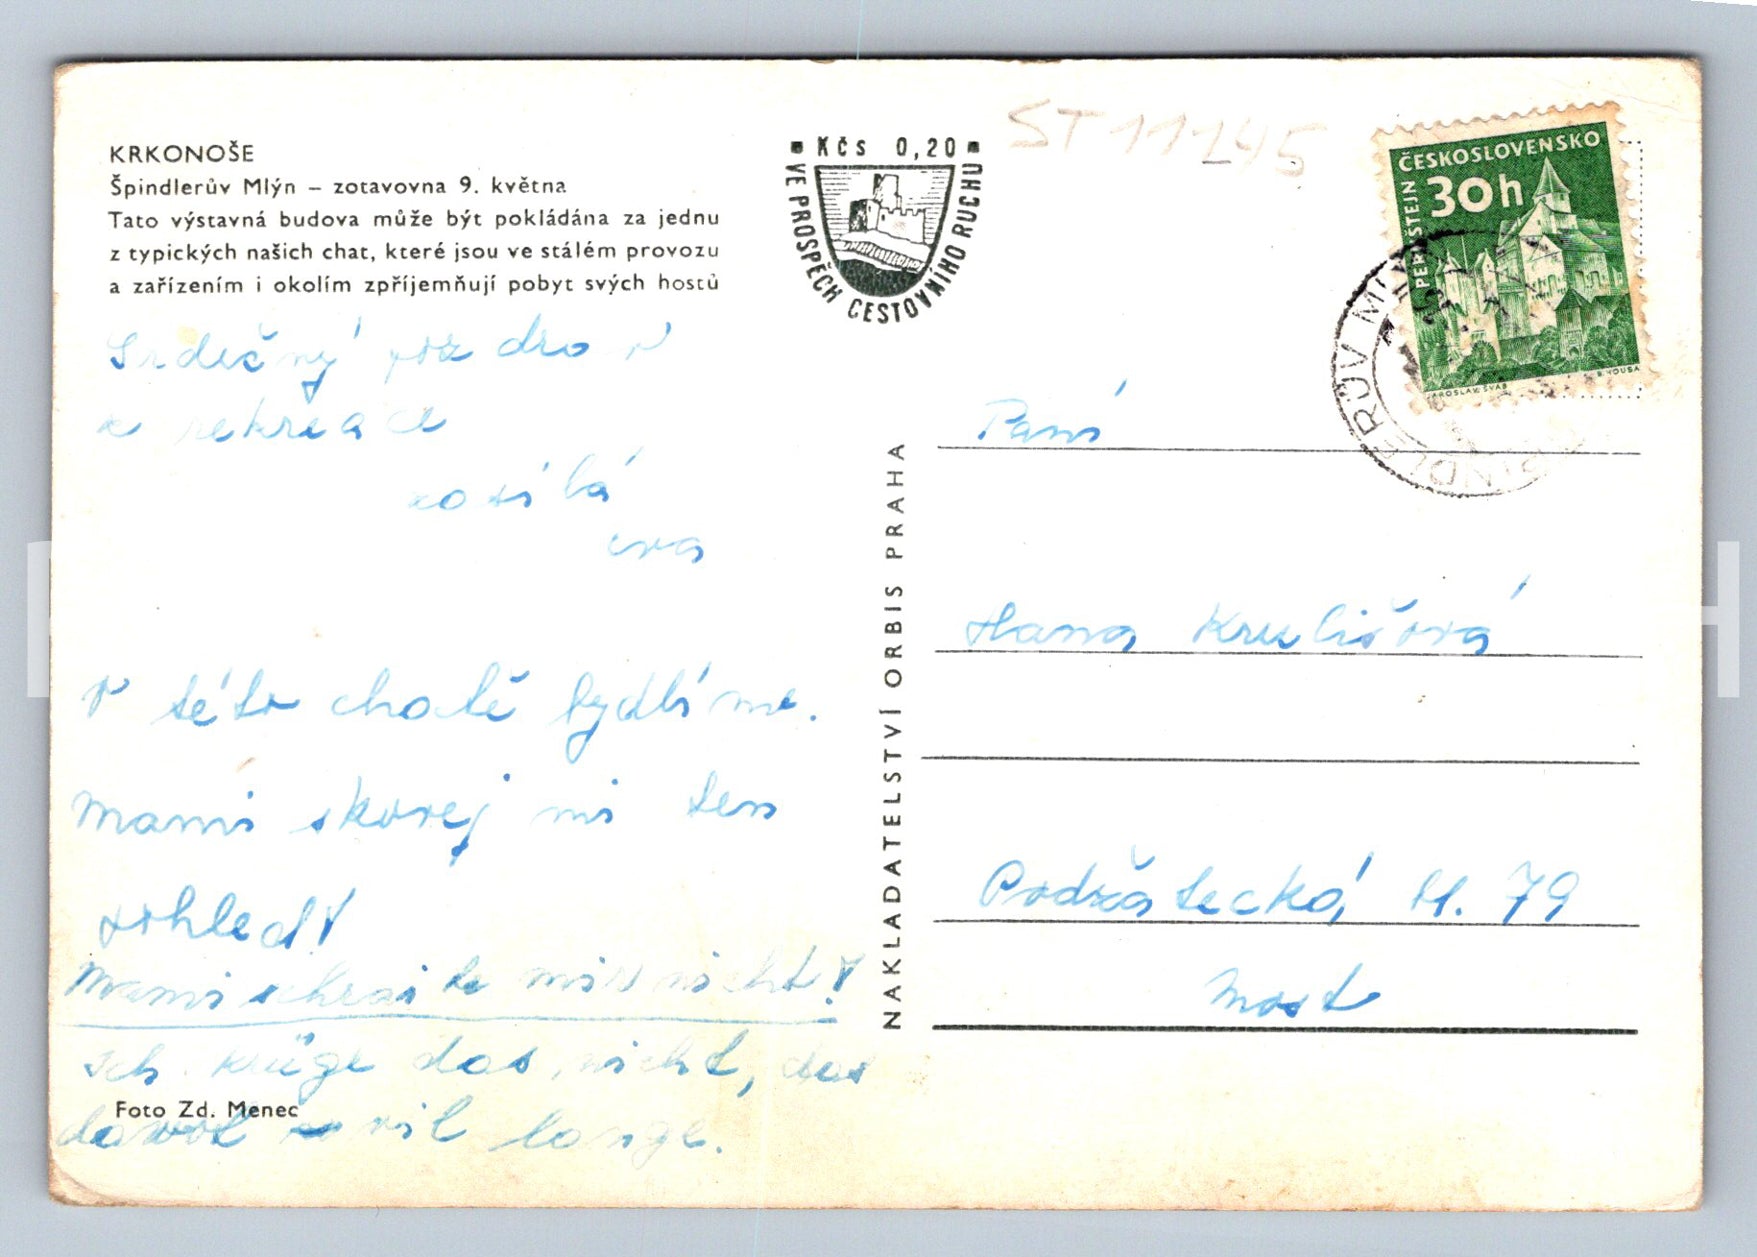 KRKONOŠE
Špindlerův Mlýn – zotavovna 9. května
Tato výstavná budova může být pokládána za jednu
z typických našich chat, které jsou ve stálém provozu
a zařízením i okolím zpříjemňují pobyt svých hostů
■ Kčs 0,20 ■
VE PROSPĚCH CESTOVNÍHO RUCHU
ST 11245
ČESKOSLOVENSKO
30h
PERNŠTEJN
JAROSLAV ŠVÁB
B. HOUSA
ŠPINDLERŮV MLÝN
Srdečný pozdrav
z rekreace
zasílá
Iva
V této chatě bydlíme.
Mami skorej mi ten
pohled!
Mami schreibe mir nicht!
Ich kriege das nicht, das
dauert zu vil lange.
Foto Zd. Menec
NAKLADATELSTVÍ ORBIS PRAHA
Paní
Hana Krulišová
Podžatecká, bl. 79
Most